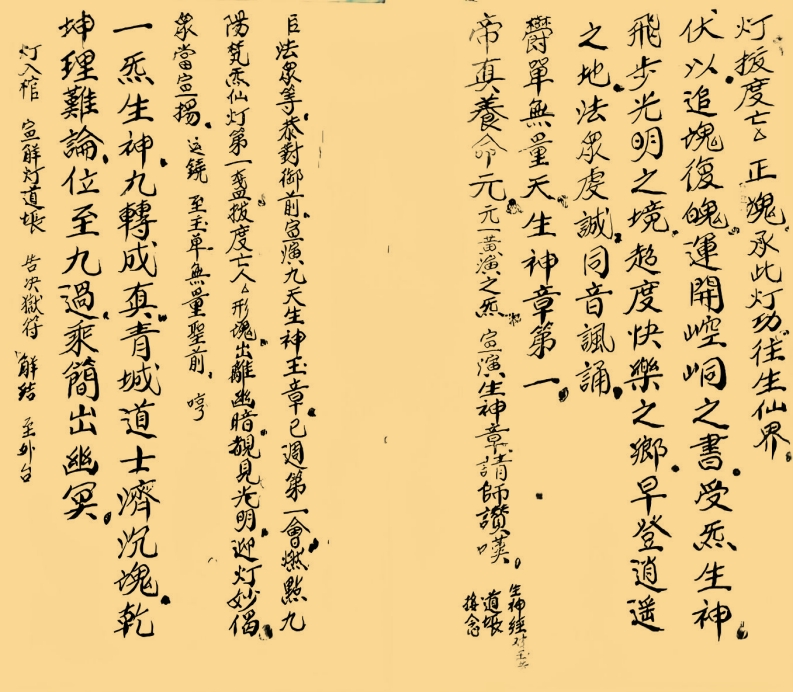 灯拔度亡厶正魂承此灯功往生仙界
伏以追魂復魄運開崆峒之書受炁生神
飛步光明之境超度快樂之鄉早登逍遥
之地法衆虔誠同音諷誦
欝單無量天生神章第一
帝真養命元 元一黄演之炁 宣演生神章請師讃嘆
生神經对玉
道塲
接念
臣法衆等恭對御前宣演九天生神玉章已週第一會燃點九
陽梵炁仙灯第一盞拔度亡人厶形魂出離幽暗覩見光明迎灯妙偈
衆當宣揚 送鐃 至玉单無量聖前 哼
一炁生神九轉成真青城道士濟沉魂乾
坤理難論位至九過乘簡出幽冥
灯入棺 宣觧灯道塲 告決獄符 觧結 至外台